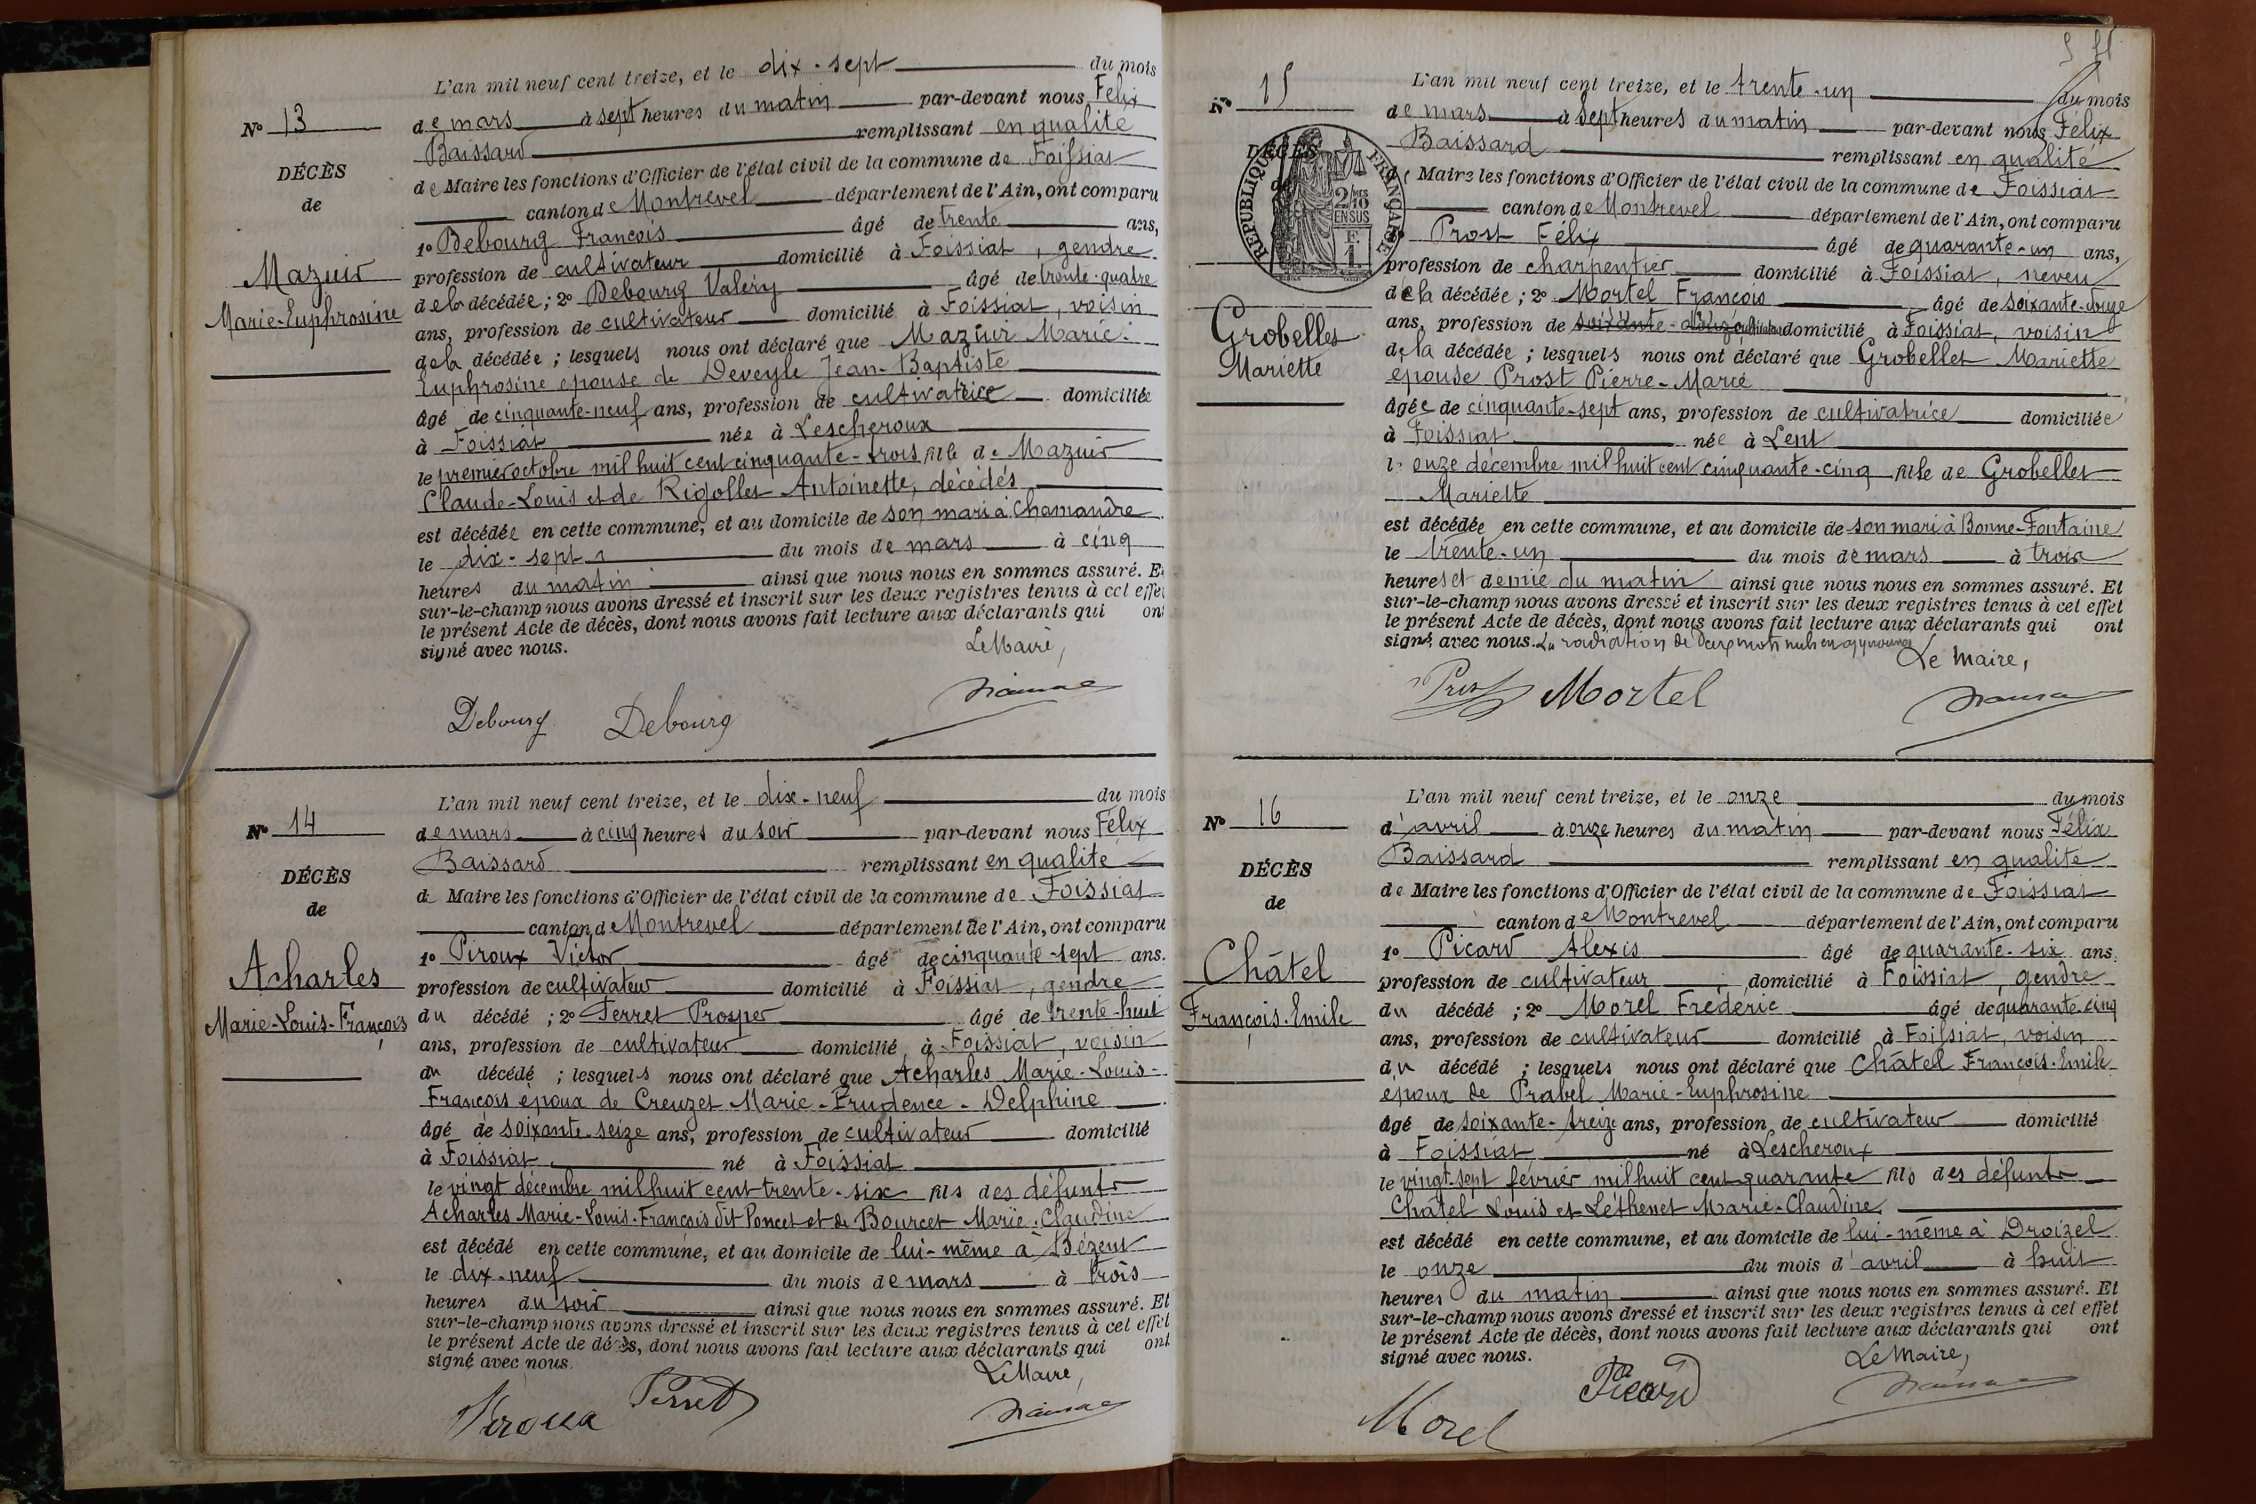 N° 13
DÉCÈS
de
Mazuir
Marie-Euphrosine
L'an mil neuf cent treize, et le dix-sept du mois
de mars à sept heures du matin par-devant nous Félix
Baissard remplissant en qualité
de Maire les fonctions d'Officier de l'état civil de la commune de Foissiat
canton de Montrevel département de l'Ain, ont comparu
1° Debourg François âgé de trente ans,
profession de cultivateur domicilié à Foissiat, gendre
de la décédée ; 2° Debourg Valéry âgé de trente-quatre
ans, profession de cultivateur domicilié à Foissiat, voisin
de la décédée ; lesquels nous ont déclaré que Mazuir Marie-
Euphrosine épouse de Deveyle Jean-Baptiste
âgé de cinquante-neuf ans, profession de cultivatrice domiciliée
à Foissiat née à Lescheroux
le premier octobre mil huit cent cinquante-trois fille de Mazuir
Claude-Louis et de Rigollet Antoinette, décédés
est décédée en cette commune, et au domicile de son mari à Chamandre
le dix-sept du mois de mars à cinq
heures du matin ainsi que nous nous en sommes assuré. Et
sur-le-champ nous avons dressé et inscrit sur les deux registres tenus à cet effet
le présent Acte de décès, dont nous avons fait lecture aux déclarants qui ont
signé avec nous.
Le Maire,
Debourg Debourg
N° 14
DÉCÈS
de
Acharles
Marie-Louis-François
L'an mil neuf cent treize, et le dix-neuf du mois
de mars à cinq heures du soir par-devant nous Félix
Baissard remplissant en qualité
de Maire les fonctions d'Officier de l'état civil de la commune de Foissiat
canton de Montrevel département de l'Ain, ont comparu
1° Piroux Victor âgé de cinquante-sept ans.
profession de cultivateur domicilié à Foissiat, gendre
du décédé ; 2° Ferret Prosper âgé de trente-huit
ans, profession de cultivateur domicilié à Foissiat, voisin
du décédé ; lesquels nous ont déclaré que Acharles Marie-Louis-
François époux de Creuzet Marie-Prudence-Delphine
âgé de soixante-seize ans, profession de cultivateur domicilié
à Foissiat né à Foissiat
le vingt décembre mil huit cent trente-six fils des défunts
Acharles Marie-Louis-François dit Poncet et de Bourcet Marie-Claudine
est décédé en cette commune, et au domicile de lui-même à Bézent
le dix-neuf du mois de mars à trois
heures du soir ainsi que nous nous en sommes assuré. Et
sur-le-champ nous avons dressé et inscrit sur les deux registres tenus à cet effet
le présent Acte de décès, dont nous avons fait lecture aux déclarants qui ont
signé avec nous.
Le Maire,
Piroux Ferret
N° 15
DÉCÈS
de
RÉPUBLIQUE FRANÇAISE
2/10
EN SUS
F.
1
Grobellet
Mariette
L'an mil neuf cent treize, et le trente-un du mois
de mars à sept heures du matin par-devant nous Félix
Baissard remplissant en qualité
de Maire les fonctions d'Officier de l'état civil de la commune de Foissiat
canton de Montrevel département de l'Ain, ont comparu
Prost Félix âgé de quarante-un ans,
profession de charpentier domicilié à Foissiat, neveu
de la décédée ; 2° Mortel François âgé de soixante-onze
ans, profession de domicilié à Foissiat, voisin
de la décédée ; lesquels nous ont déclaré que Grobellet Mariette
épouse Prost Pierre-Marie
âgée de cinquante-sept ans, profession de cultivatrice domiciliée
à Foissiat née à Lent
le onze décembre mil huit cent cinquante-cinq fille de Grobellet
Mariette
est décédée en cette commune, et au domicile de son mari à Bonne-Fontaine
le trente-un du mois de mars à trois
heures et demie du matin ainsi que nous nous en sommes assuré. Et
sur-le-champ nous avons dressé et inscrit sur les deux registres tenus à cet effet
le présent Acte de décès, dont nous avons fait lecture aux déclarants qui ont
signé avec nous. La radiation de deux mots nuls en approuvée
Le Maire,
Prost Mortel
N° 16
DÉCÈS
de
Châtel
François-Emile
L'an mil neuf cent treize, et le onze du mois
d'avril à onze heures du matin par-devant nous Félix
Baissard remplissant en qualité
de Maire les fonctions d'Officier de l'état civil de la commune de Foissiat
canton de Montrevel département de l'Ain, ont comparu
1° Picard Alexis âgé de quarante-six ans,
profession de cultivateur domicilié à Foissiat, gendre
du décédé ; 2° Morel Frédéric âgé de quarante-cinq
ans, profession de cultivateur domicilié à Foissiat, voisin
du décédé ; lesquels nous ont déclaré que Châtel François-Emile
époux de Prabel Marie-Euphrosine
âgé de soixante-treize ans, profession de cultivateur domicilié
à Foissiat né à Lescheroux
le vingt-sept février mil huit cent quarante fils des défunts
Châtel Louis et Léthenet Marie-Claudine
est décédé en cette commune, et au domicile de lui-même à Droizel
le onze du mois d'avril à huit
heures du matin ainsi que nous nous en sommes assuré. Et
sur-le-champ nous avons dressé et inscrit sur les deux registres tenus à cet effet
le présent Acte de décès, dont nous avons fait lecture aux déclarants qui ont
signé avec nous.
Le Maire,
Morel Picard